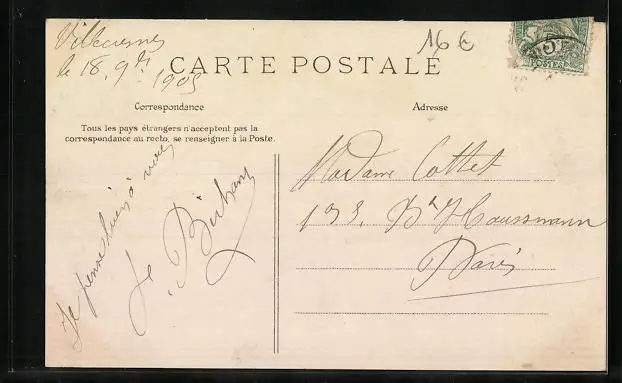 le 18. 9bre 1905
16 €
CARTE POSTALE
Correspondance
Adresse
Tous les pays étrangers n'acceptent pas la
correspondance au recto, se renseigner à la Poste.
Je pense bien à vous
Madame Cottet
133, Bd Haussmann
Paris
5
POSTES